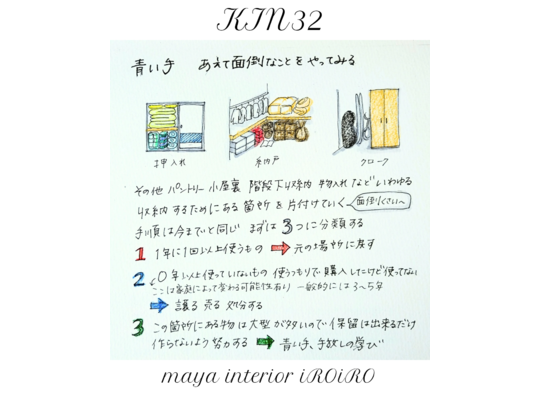 KIN32
青い手 あえて面倒なことをやってみる
押入れ 納戸 クローク
その他 パントリー 小屋裏 階段下収納 物入れ などいわゆる
収納するためにある箇所を片付けていく 面倒くさい〜
手順は今までと同じ まずは3つに分類する
1 1年に1回以上使うもの 元の場所に戻す
2 ○年以上使っていないもの 使うつもりで購入したけど使ってない
ここは家庭によって変わる可能性有り 一般的には3〜5年
譲る 売る 処分する
3 この箇所にある物は大型が多いので保留は出来るだけ
作らないよう努力する 青い手、手放しの学び
maya interior iROiRO